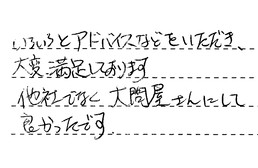 いろいろとアドバイスなどをいただき、
大変満足しております
他社でなく大問屋さんにして
良かったです。